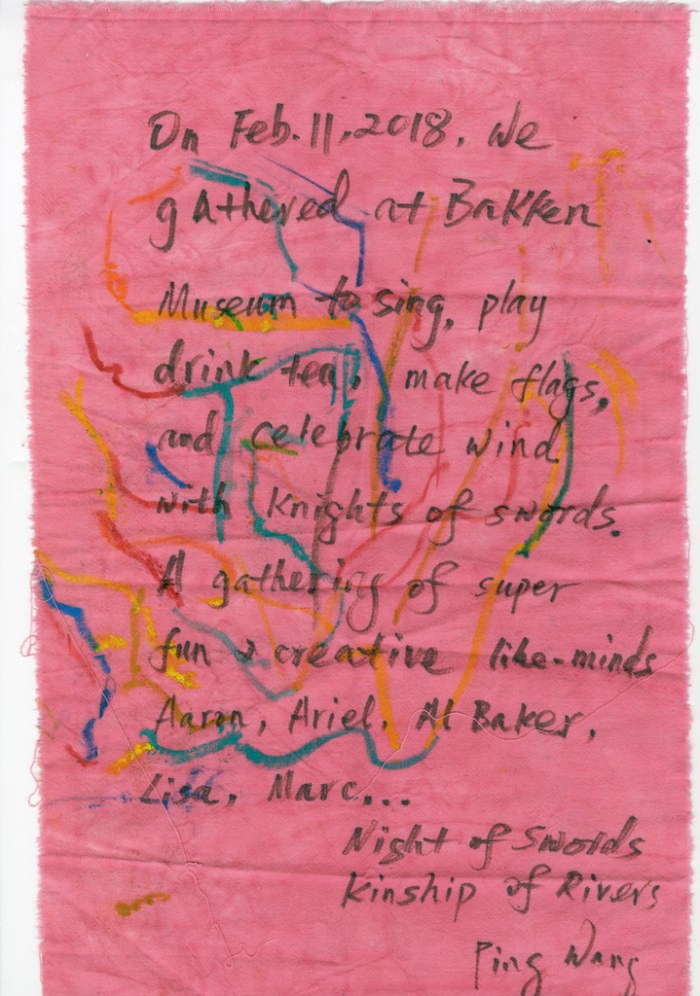 On Feb. 11, 2018, we
gathered at Bakken
Museum to sing, play
drink tea, make flags,
and celebrate wind
with Knights of swords.
A gathering of super
fun & creative like-minds
Aaron, Ariel, Al Baker,
Lisa, Marc...
Night of Swords
Kinship of Rivers
Ping Wang